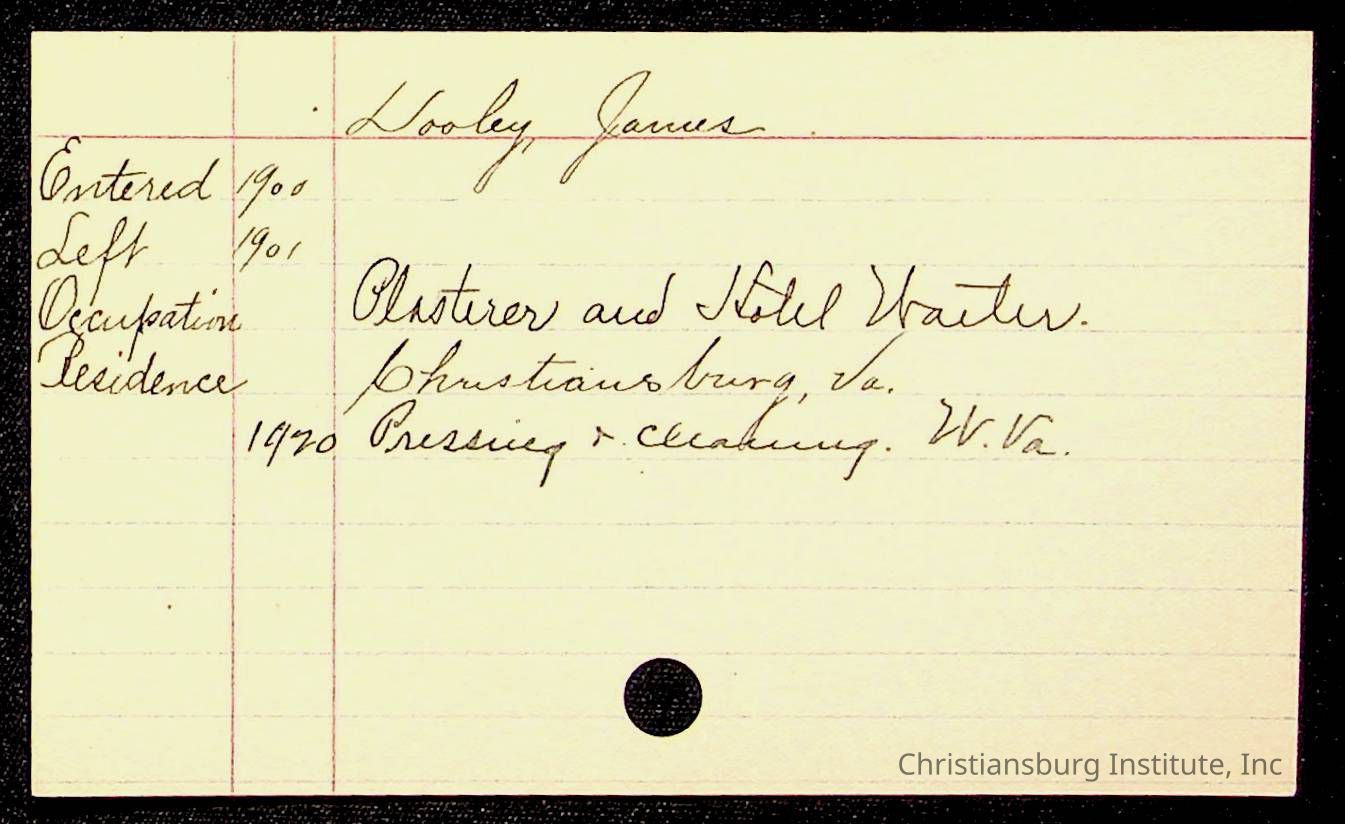 Wooley, James
Entered 1900
Left 1901
Occupation Plasterer and Hotel Waiter.
Residence Christiansburg, Va.
1920 Pressing & Cleaning. W. Va.
Christiansburg Institute, Inc